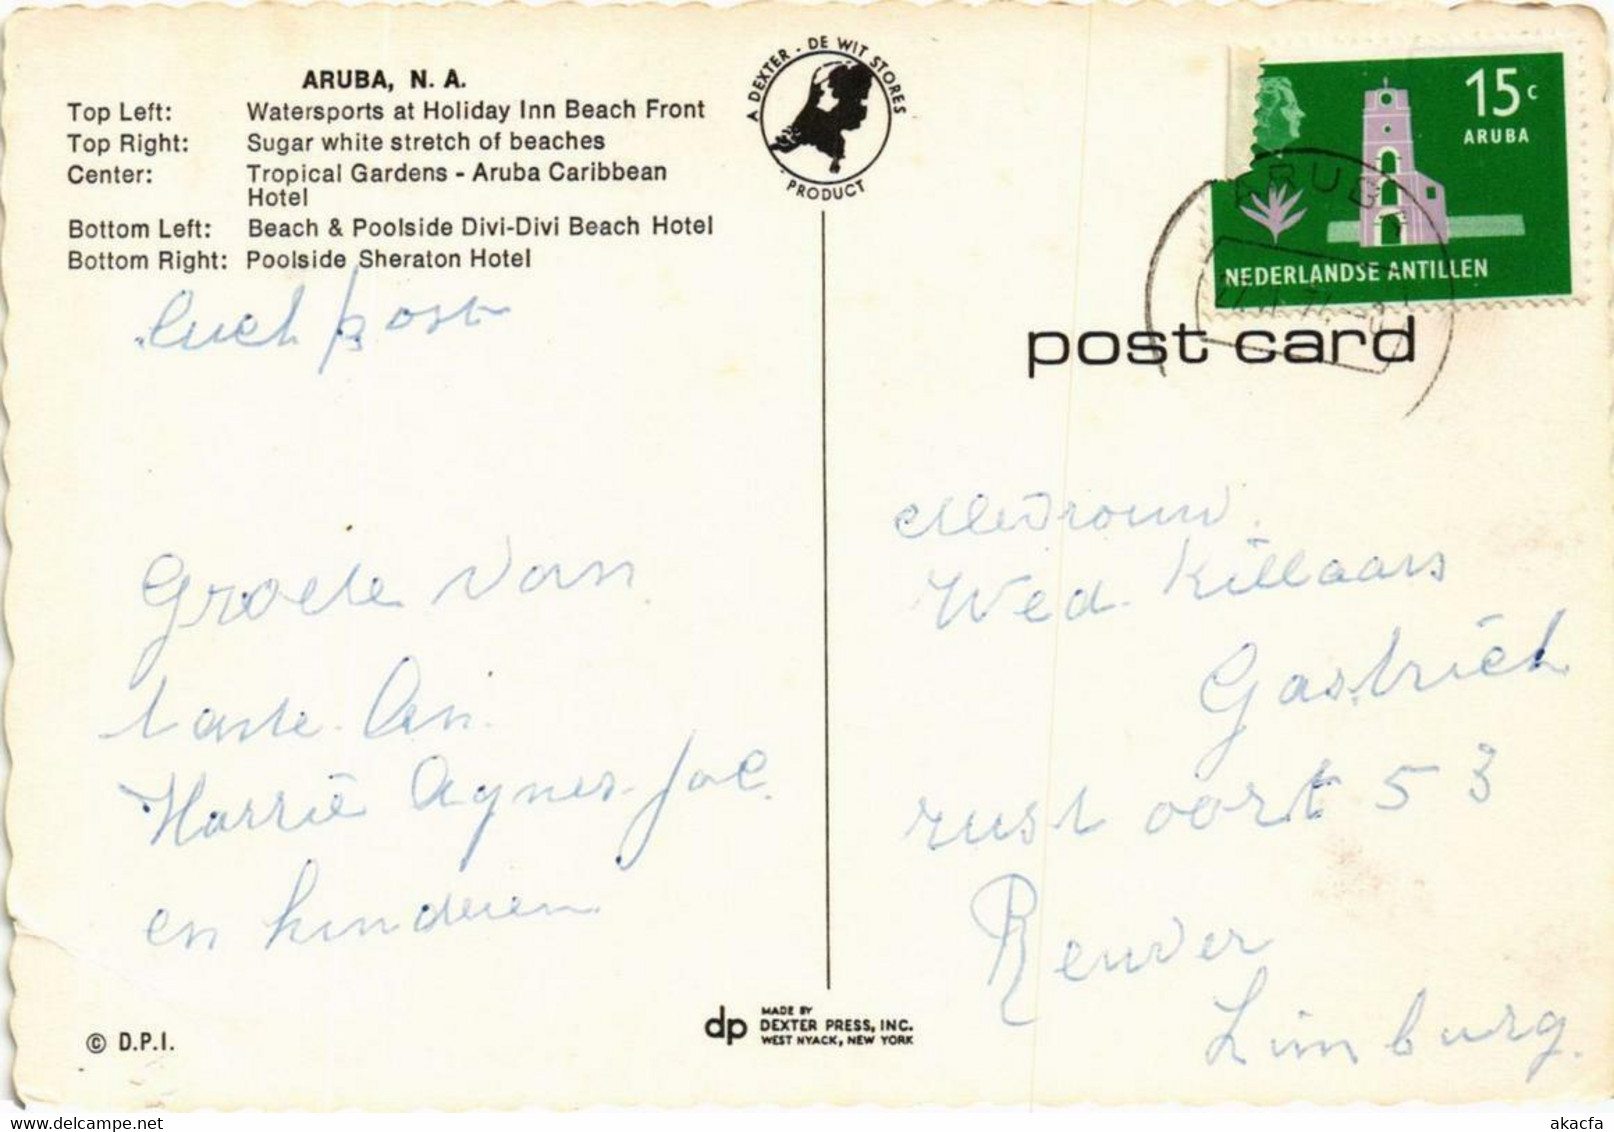 ARUBA, N. A.
Top Left: Watersports at Holiday Inn Beach Front
Top Right: Sugar white stretch of beaches
Center: Tropical Gardens - Aruba Caribbean
Hotel
Bottom Left: Beach & Poolside Divi-Divi Beach Hotel
Bottom Right: Poolside Sheraton Hotel
A DEXTER - DE WIT STORES
PRODUCT
15 c
ARUBA
NEDERLANDSE ANTILLEN
ARUBA
post card
Luchtpost
Groete van
tante
Harrie Agnes
en kinderen
Mevrouw
Wed. Killaars
Gastrich
rust oort 53
Reuver
Limburg.
© D.P.I.
dp
MADE BY
DEXTER PRESS, INC.
WEST NYACK, NEW YORK
akacfa